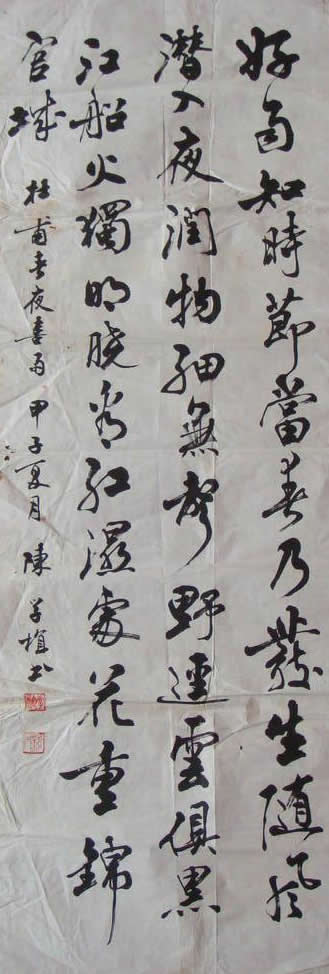 好雨知時節當春乃發生隨風
潛入夜潤物細無聲野逕雲俱黑
江船火獨明曉看紅濕處花重錦
官城 杜甫春夜喜雨 甲子夏月 陳学植书